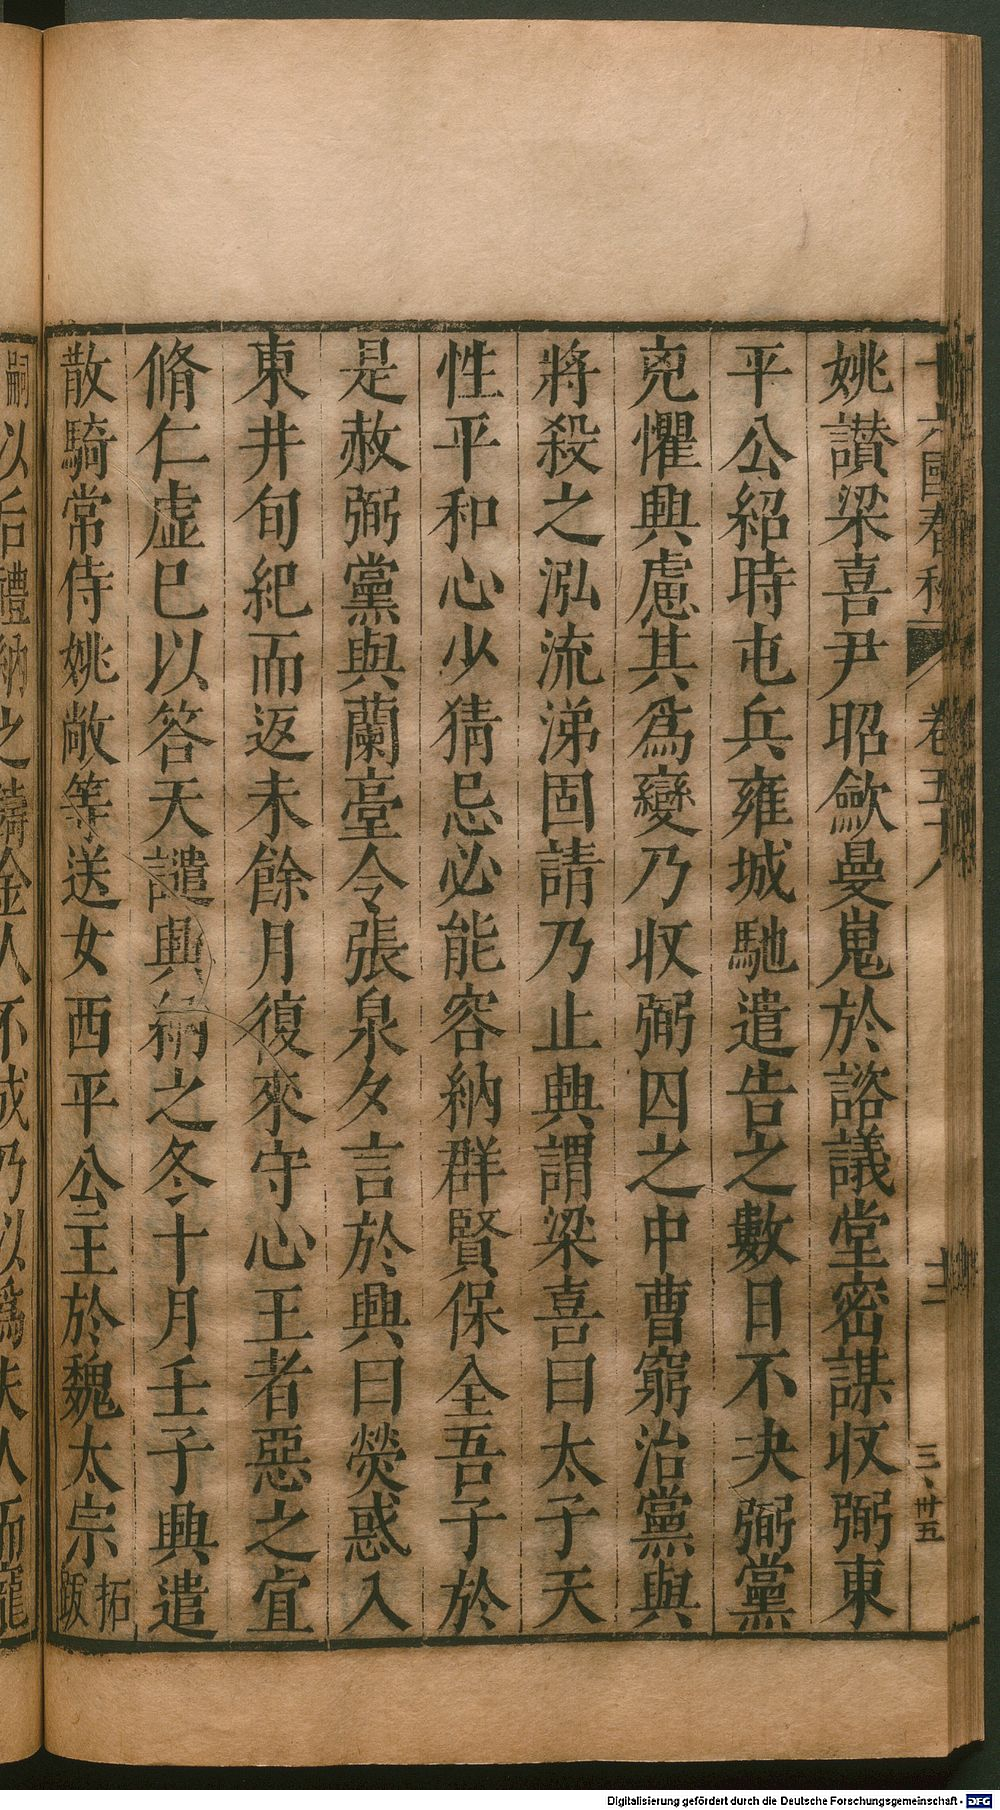 十六國春秋 卷五十八 十二 三、卅五
姚讃梁喜尹昭斂曼嵬於諮議堂密謀収弼東
平公紹時屯兵雍城馳遣告之數日不決弼黨
兇懼興慮其爲變乃収弼囚之中曹窮治黨與
將殺之泓流涕固請乃止興謂梁喜曰太子天
性平和心少猜忌必能容納群賢保全吾子於
是赦弼黨與蘭臺令張泉夕言於興曰熒惑入
東井旬紀而返未餘月復來守心王者惡之宜
脩仁虚巳以答天譴興納之冬十月壬子興遣
散騎常侍姚敞等送女西平公主於魏太宗拓跋
嗣以后禮納之鑄金人不成乃以爲夫人而寵
Digitalisierung gefördert durch die Deutsche Forschungsgemeinschaft - DFG